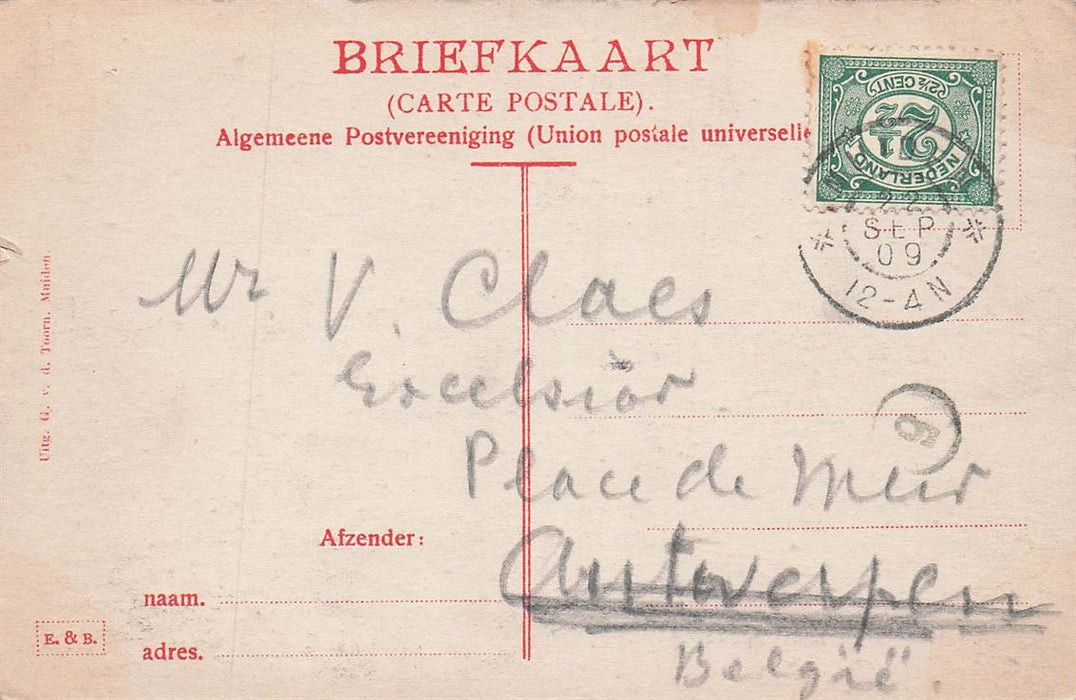 BRIEFKAART
(CARTE POSTALE).
Algemeene Postvereeniging (Union postale universelle
2½ CENT
2½
NEDERLAND
22
SEP
09
12-4N
Mr V. Claes
Excelsior
Place de Meir
Antwerpen
België
Uitg. G. v. d. Toorn. Muiden.
Afzender:
naam.
adres.
E. & B.